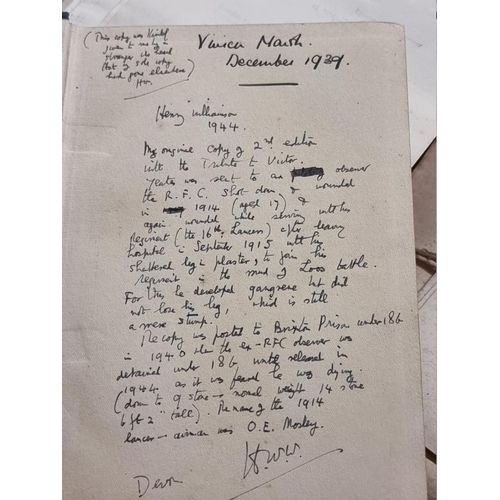 (This copy was kindly
given to me by a
stranger who heard
that I sole copy
had gone elsewhere)
HW.
Vivica Marsh.
December 1939.
Henry Williamson
1944.
My original copy of 2nd edition
with the Tribute to Victor
Yeates was sent to an observer
the R.F.C. shot down, & wounded
in 1914 (aged 17) &
again wounded while serving with his
Regiment (the 16th Lancers) after leaving
hospital in September 1915 with his
shattered leg in plaster, to join his
regiment in the mud of Loos battle.
For this he developed gangrene but did
not lose his leg, which is still
a mere stump.
The copy was posted to Brixton Prison under 18b
in 1940 when the ex-RFC observer was
detained under 18b until released in
1944 as it was feared he was dying
(down to 9 stone — normal weight 14 stone
6 ft 2" tall). The name of the 1914
lancer-airman was O.E. Mosley.
H.W.W.
Devon